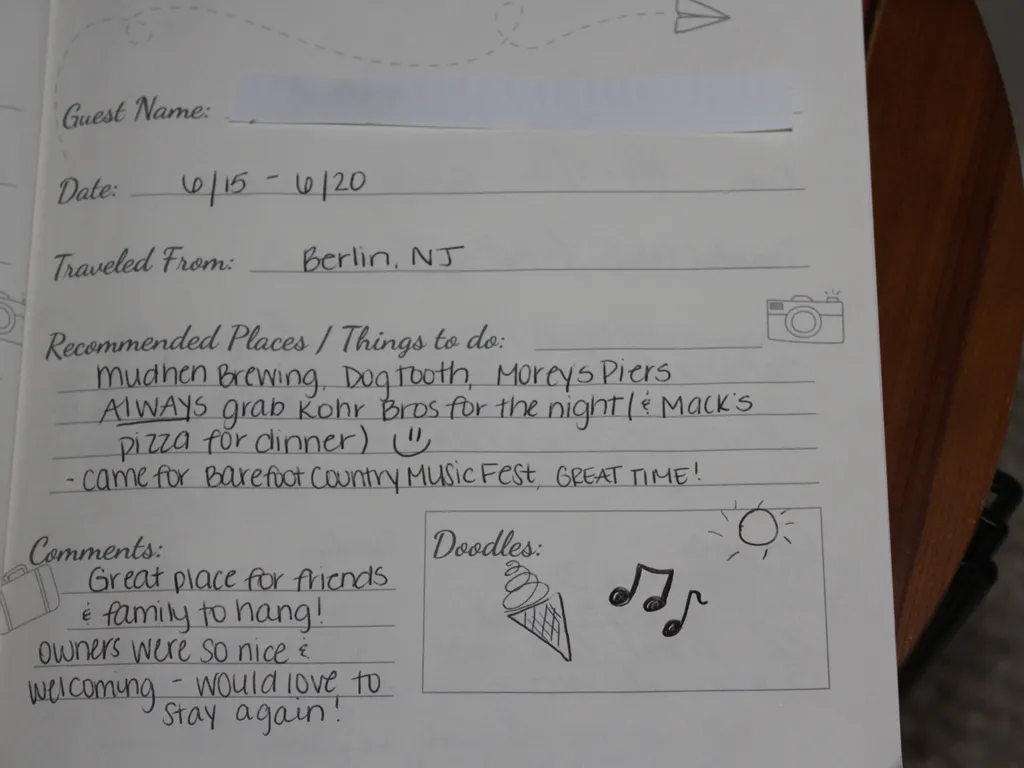 Guest Name:
Date: 6/15 - 6/20
Traveled From: Berlin, NJ
Recommended Places / Things to do:
Mudhen Brewing, Dogtooth, Moreys Piers
ALWAYS grab Kohr Bros for the night (& Mack's
pizza for dinner)
- came for Barefoot Country Music Fest, GREAT TIME!
Comments:
Great place for friends
& family to hang!
owners were so nice &
welcoming - would love to
stay again!
Doodles: